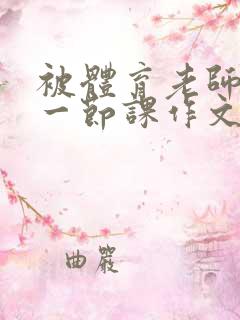 被體育老師
一節課作文
曲嚴